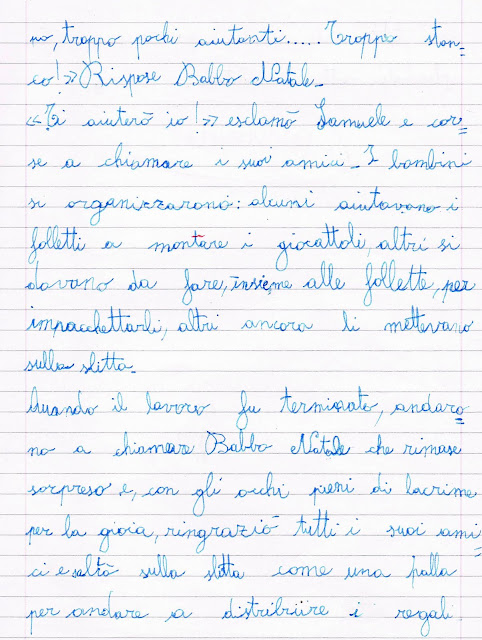 no, troppo pochi aiutanti..... Troppo stan=
co!»Rispose Babbo Natale.
«Ti aiuterò io!» esclamò Samuele e cor=
se a chiamare i suoi amici. I bambini
si organizzarono: alcuni aiutavano i
folletti a montare i giocattoli, altri si
davano da fare, insieme alle follette, per
impacchettarli, altri ancora li mettevano
sulla slitta.
Quando il lavoro fu terminato, andaro
no a chiamare Babbo Natale che rimase
sorpreso e, con gli occhi pieni di lacrime
per la gioia, ringraziò tutti i suoi ami=
ci e saltò sulla slitta come una palla
per andare a distribuire i regali